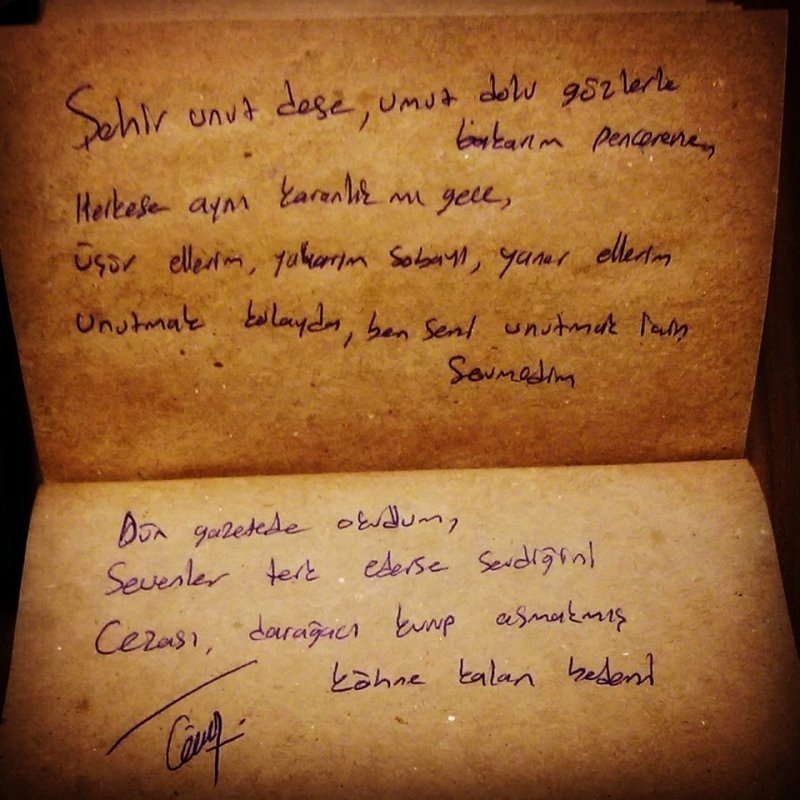 Şehir unut dese, umut dolu gözlerle
bakarım pencereme,
Herkese aynı karanlık mı gece,
Üşür ellerim, yakarım sobayı, yanar ellerim
Unutmak kolaydı, ben seni unutmak için
Sevmedim
Dün gazetede okudum,
Sevenler terk ederse sevdiğini
Cezası, darağacı kurup asmakmış
köhne kalan bedeni